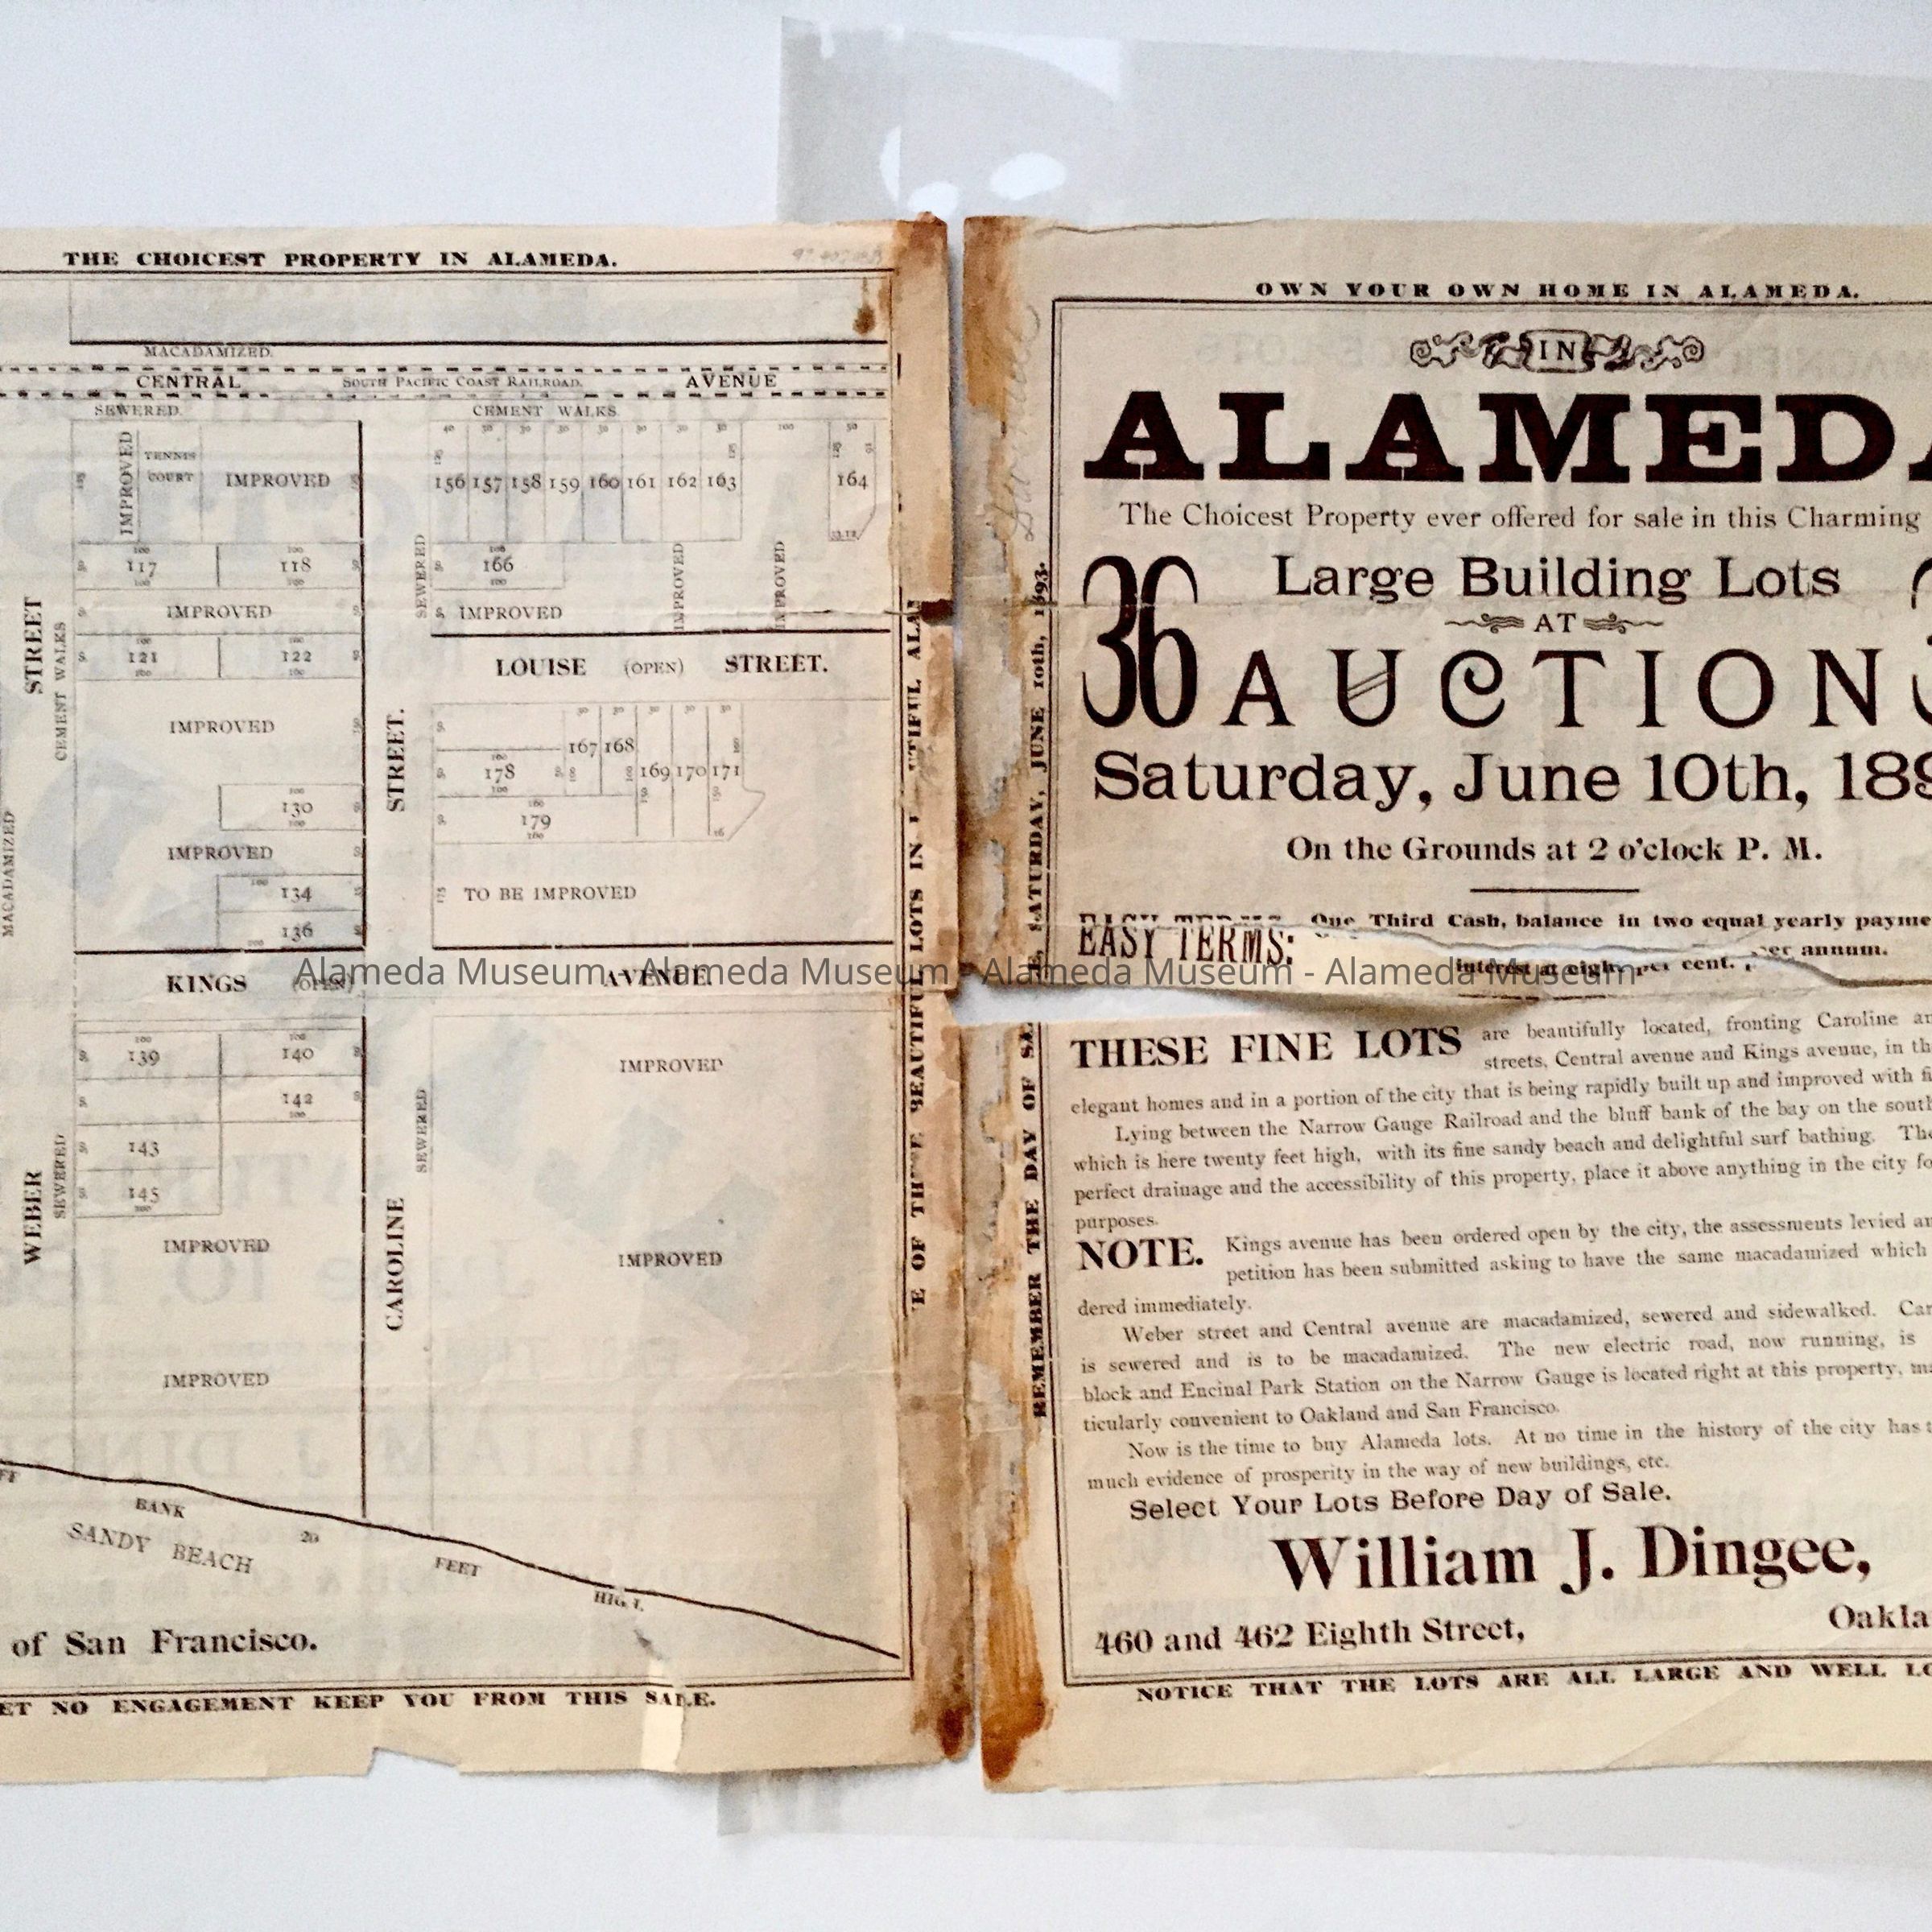 THE CHOICEST PROPERTY IN ALAMEDA.
MACADAMIZED.
CENTRAL SOUTH PACIFIC COAST RAILROAD. AVENUE
SEWERED. CEMENT WALKS
IMPROVED
TENNIS
COURT
IMPROVED
156 157 158 159 160 161 162 163 164
117 118
IMPROVED
121 122
IMPROVED
130
IMPROVED
134
136
STREET
CEMENT WALKS
MACADAMIZED
SEWERED
166
IMPROVED
IMPROVED
IMPROVED
LOUISE (OPEN) STREET.
STREET.
167 168
178 169 170 171
179
TO BE IMPROVED
KINGS (OPEN) AVENUE.
139 140
142
143
145
IMPROVED
IMPROVED
WEBER
SEWERED
CAROLINE
SEWERED
IMPROVED
IMPROVED
BANK 20 FEET HIGH.
SANDY BEACH
of San Francisco.
ET NO ENGAGEMENT KEEP YOU FROM THIS SALE.
E OF THESE BEAUTIFUL LOTS IN
REMEMBER THE DAY OF
SATURDAY, JUNE 10th, 1893.
OWN YOUR OWN HOME IN ALAMEDA.
IN
ALAMEDA
The Choicest Property ever offered for sale in this Charming
36 Large Building Lots
AT
AUCTION
Saturday, June 10th, 189
On the Grounds at 2 o'clock P. M.
EASY TERMS: One Third Cash, balance in two equal yearly payme
interest at eight per cent. per annum.
THESE FINE LOTS are beautifully located, fronting Caroline an
streets, Central avenue and Kings avenue, in th
elegant homes and in a portion of the city that is being rapidly built up and improved with fi
Lying between the Narrow Gauge Railroad and the bluff bank of the bay on the south
which is here twenty feet high, with its fine sandy beach and delightful surf bathing. The
perfect drainage and the accessibility of this property, place it above anything in the city fo
purposes.
NOTE. Kings avenue has been ordered open by the city, the assessments levied an
petition has been submitted asking to have the same macadamized which
dered immediately.
Weber street and Central avenue are macadamized, sewered and sidewalked. Car
is sewered and is to be macadamized. The new electric road, now running, is
block and Encinal Park Station on the Narrow Gauge is located right at this property, ma
ticularly convenient to Oakland and San Francisco.
Now is the time to buy Alameda lots. At no time in the history of the city has t
much evidence of prosperity in the way of new buildings, etc.
Select Your Lots Before Day of Sale.
William J. Dingee,
460 and 462 Eighth Street, Oakla
NOTICE THAT THE LOTS ARE ALL LARGE AND WELL LO
Alameda Museum - Alameda Museum - Alameda Museum - Alameda Museum